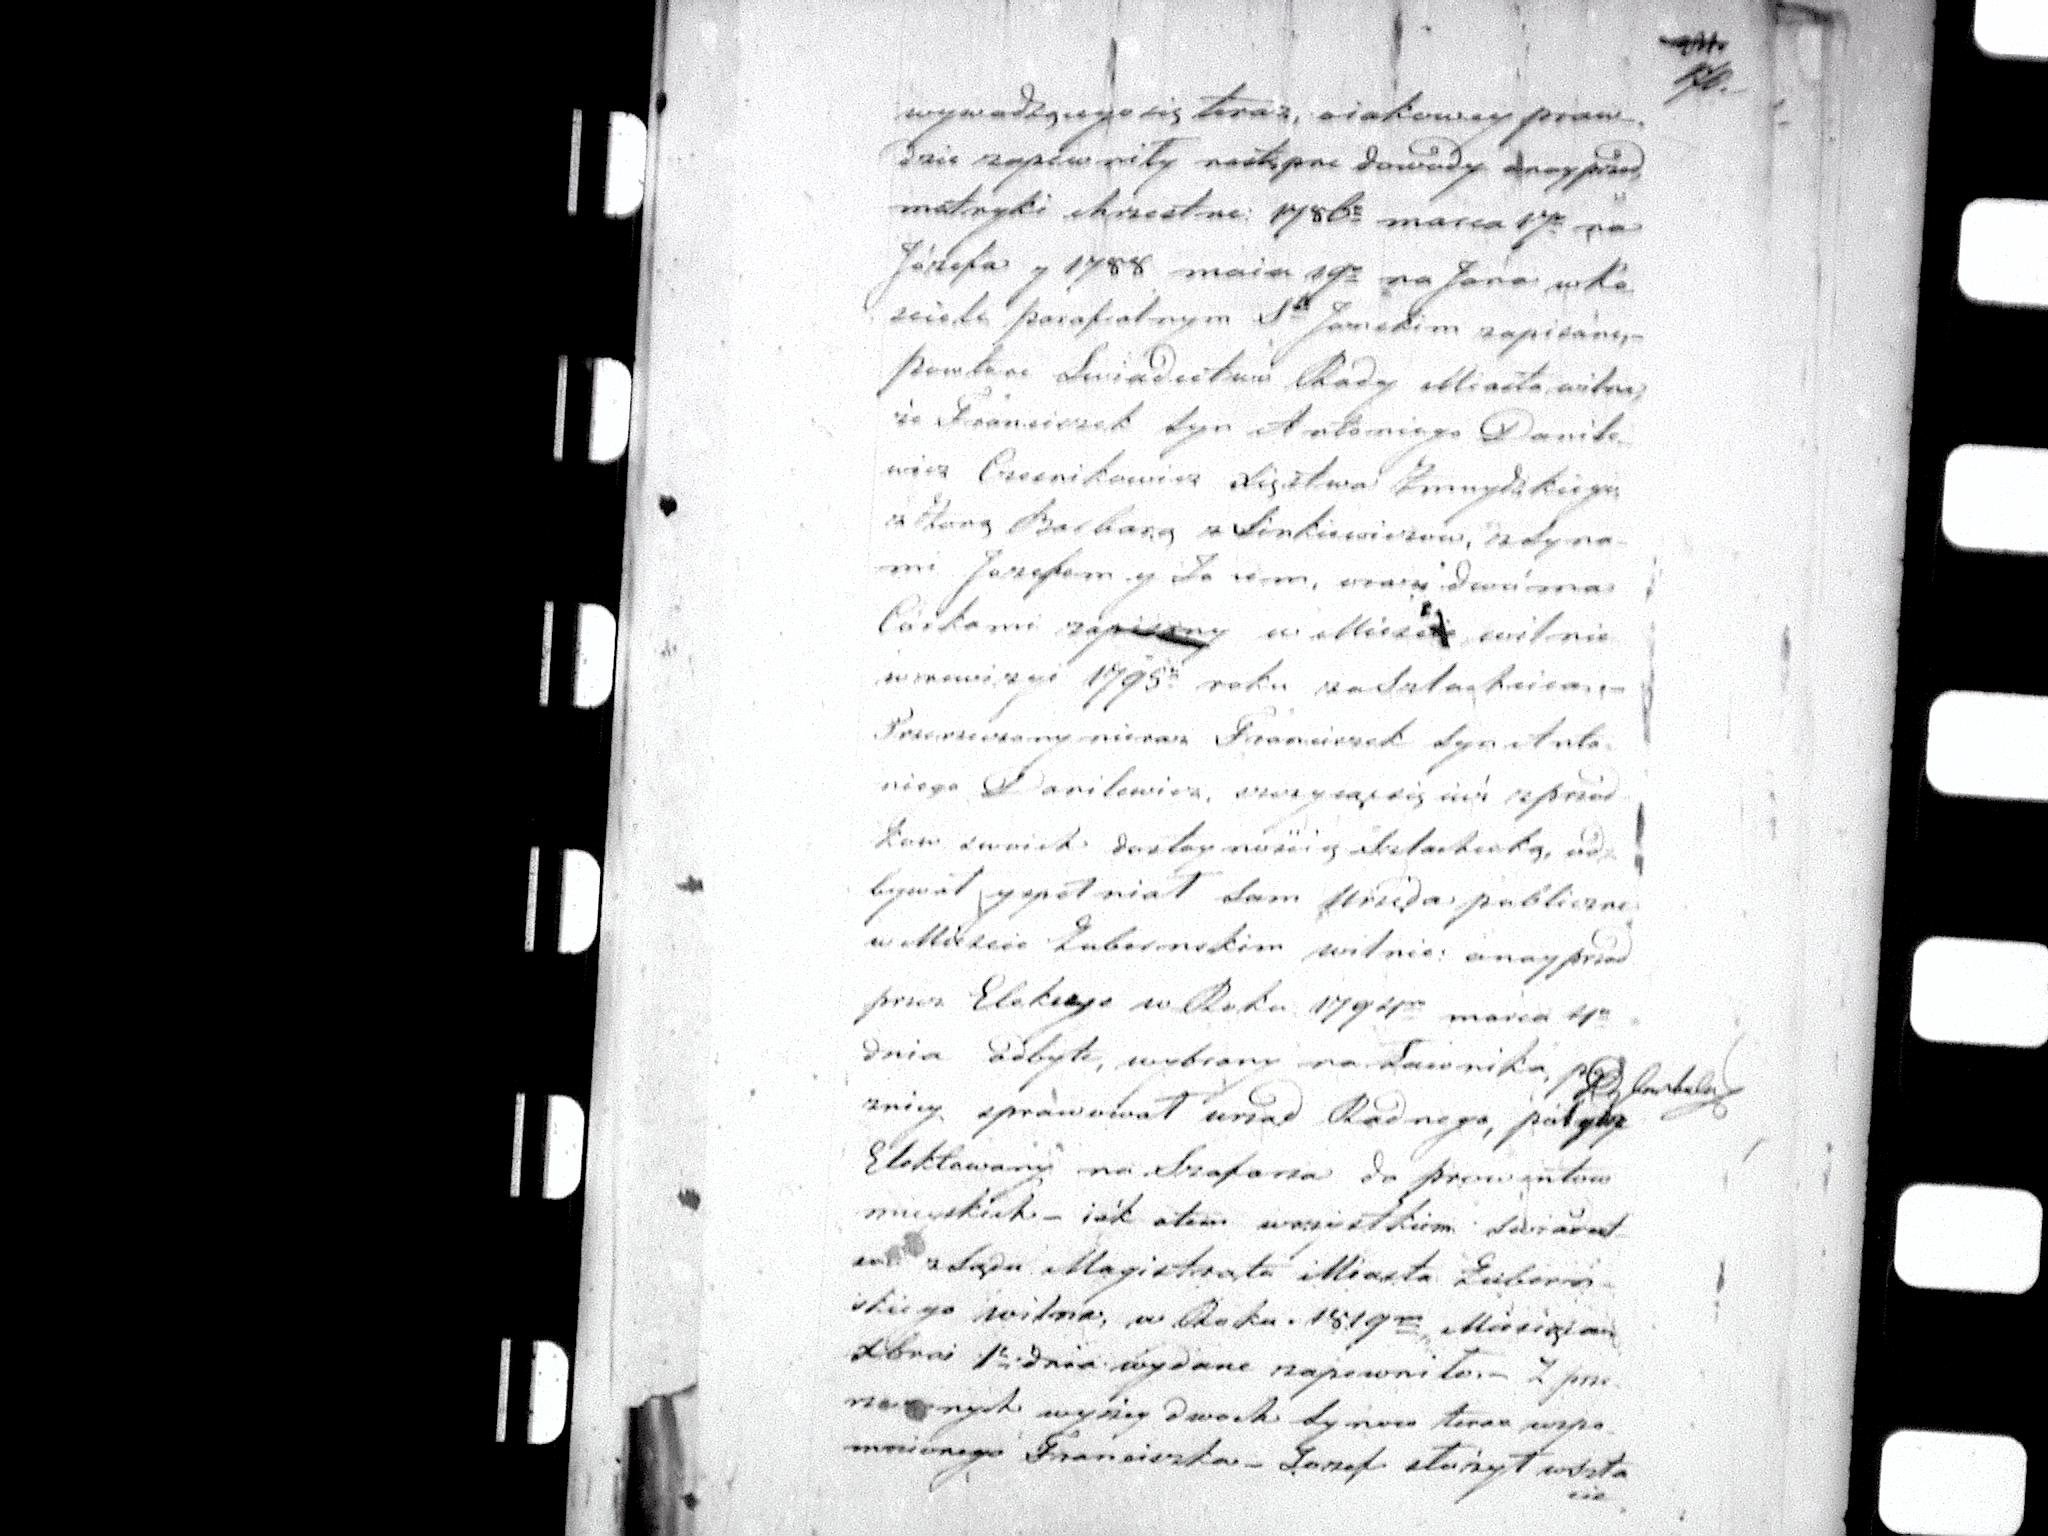 170.
wywodzącego się teraz, o iakowey praw-
dzie zapewniły następne dowody anayprzod
metryki chrzestne: 1786º marca 17º na
Józefa y 1788 maia 19º na Jana w Ko
sciele parafialnym Sto Janskim zapisane,-
powtore Swiadectwo Rady Miasta wilna,
że Franciszek syn Antoniego Danile-
wicz Czesnikowicz Xięztwa Zmuydzkiego,
z Żoną Barbarą z Sinkiewiczow, z Syna-
mi Jozefem y Janem, oraz dwóma
Córkami zapisany w Miescie wilnie
w rewizyi 1795º roku za Szlachcica,-
Przerzeczony nieraz Franciszek syn Anto-
niego Danilewicz, szczycąc się iuż z przod
kow swoich dostoynością Szlachecką, od-
bywał y spełniał sam Urzęda publiczne
w Miescie Gubernskim wilnie: anayprzod
przez Elekcyę w Roku 1794m marca 4º
dnia odbytę, wybrany na Ławnika,
zniey sprawował urząd Radnego, potym
Elektowany na Szafarza do prowentow
mieyskich - iak o tem wszystkiem swiadect-
wo z Sądu Magistratu Miasta Gubern-
skiego wilna, w Roku 1819m Miesiąca
Xbra 1º dnia wydane zapewniło.- Z prze-
rzeczonych wyżey dwoch synow teraz wspo-
mnionego Franciszka - Jozef służył w Szta
cie